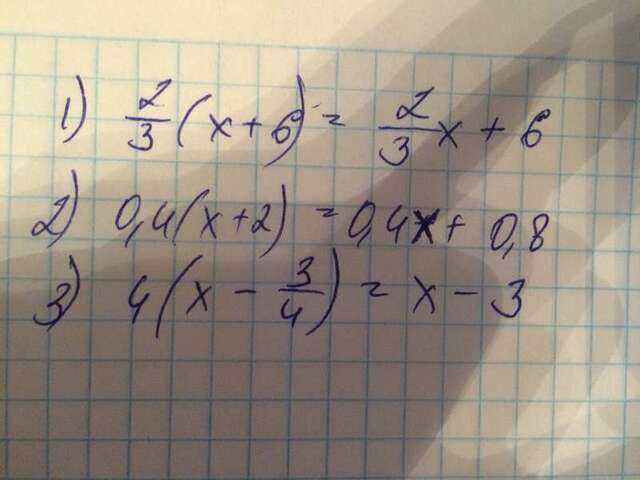 1) 2/3 (x + 6) = 2/3 x + 6
2) 0,4(x+2) = 0,4x + 0,8
3) 4(x - 3/4) = x - 3